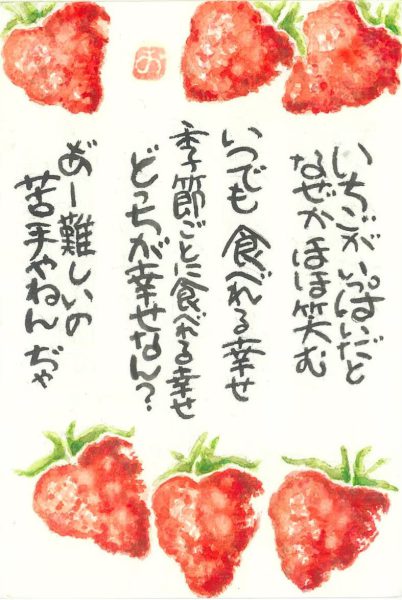 いちごが いっぱいだと
なぜか ほほ笑む
いつでも 食べれる幸せ
季節ごとに食べれる幸せ
どっちが幸せなん？
あー難しいの
苦手やねん ぢゃ
お